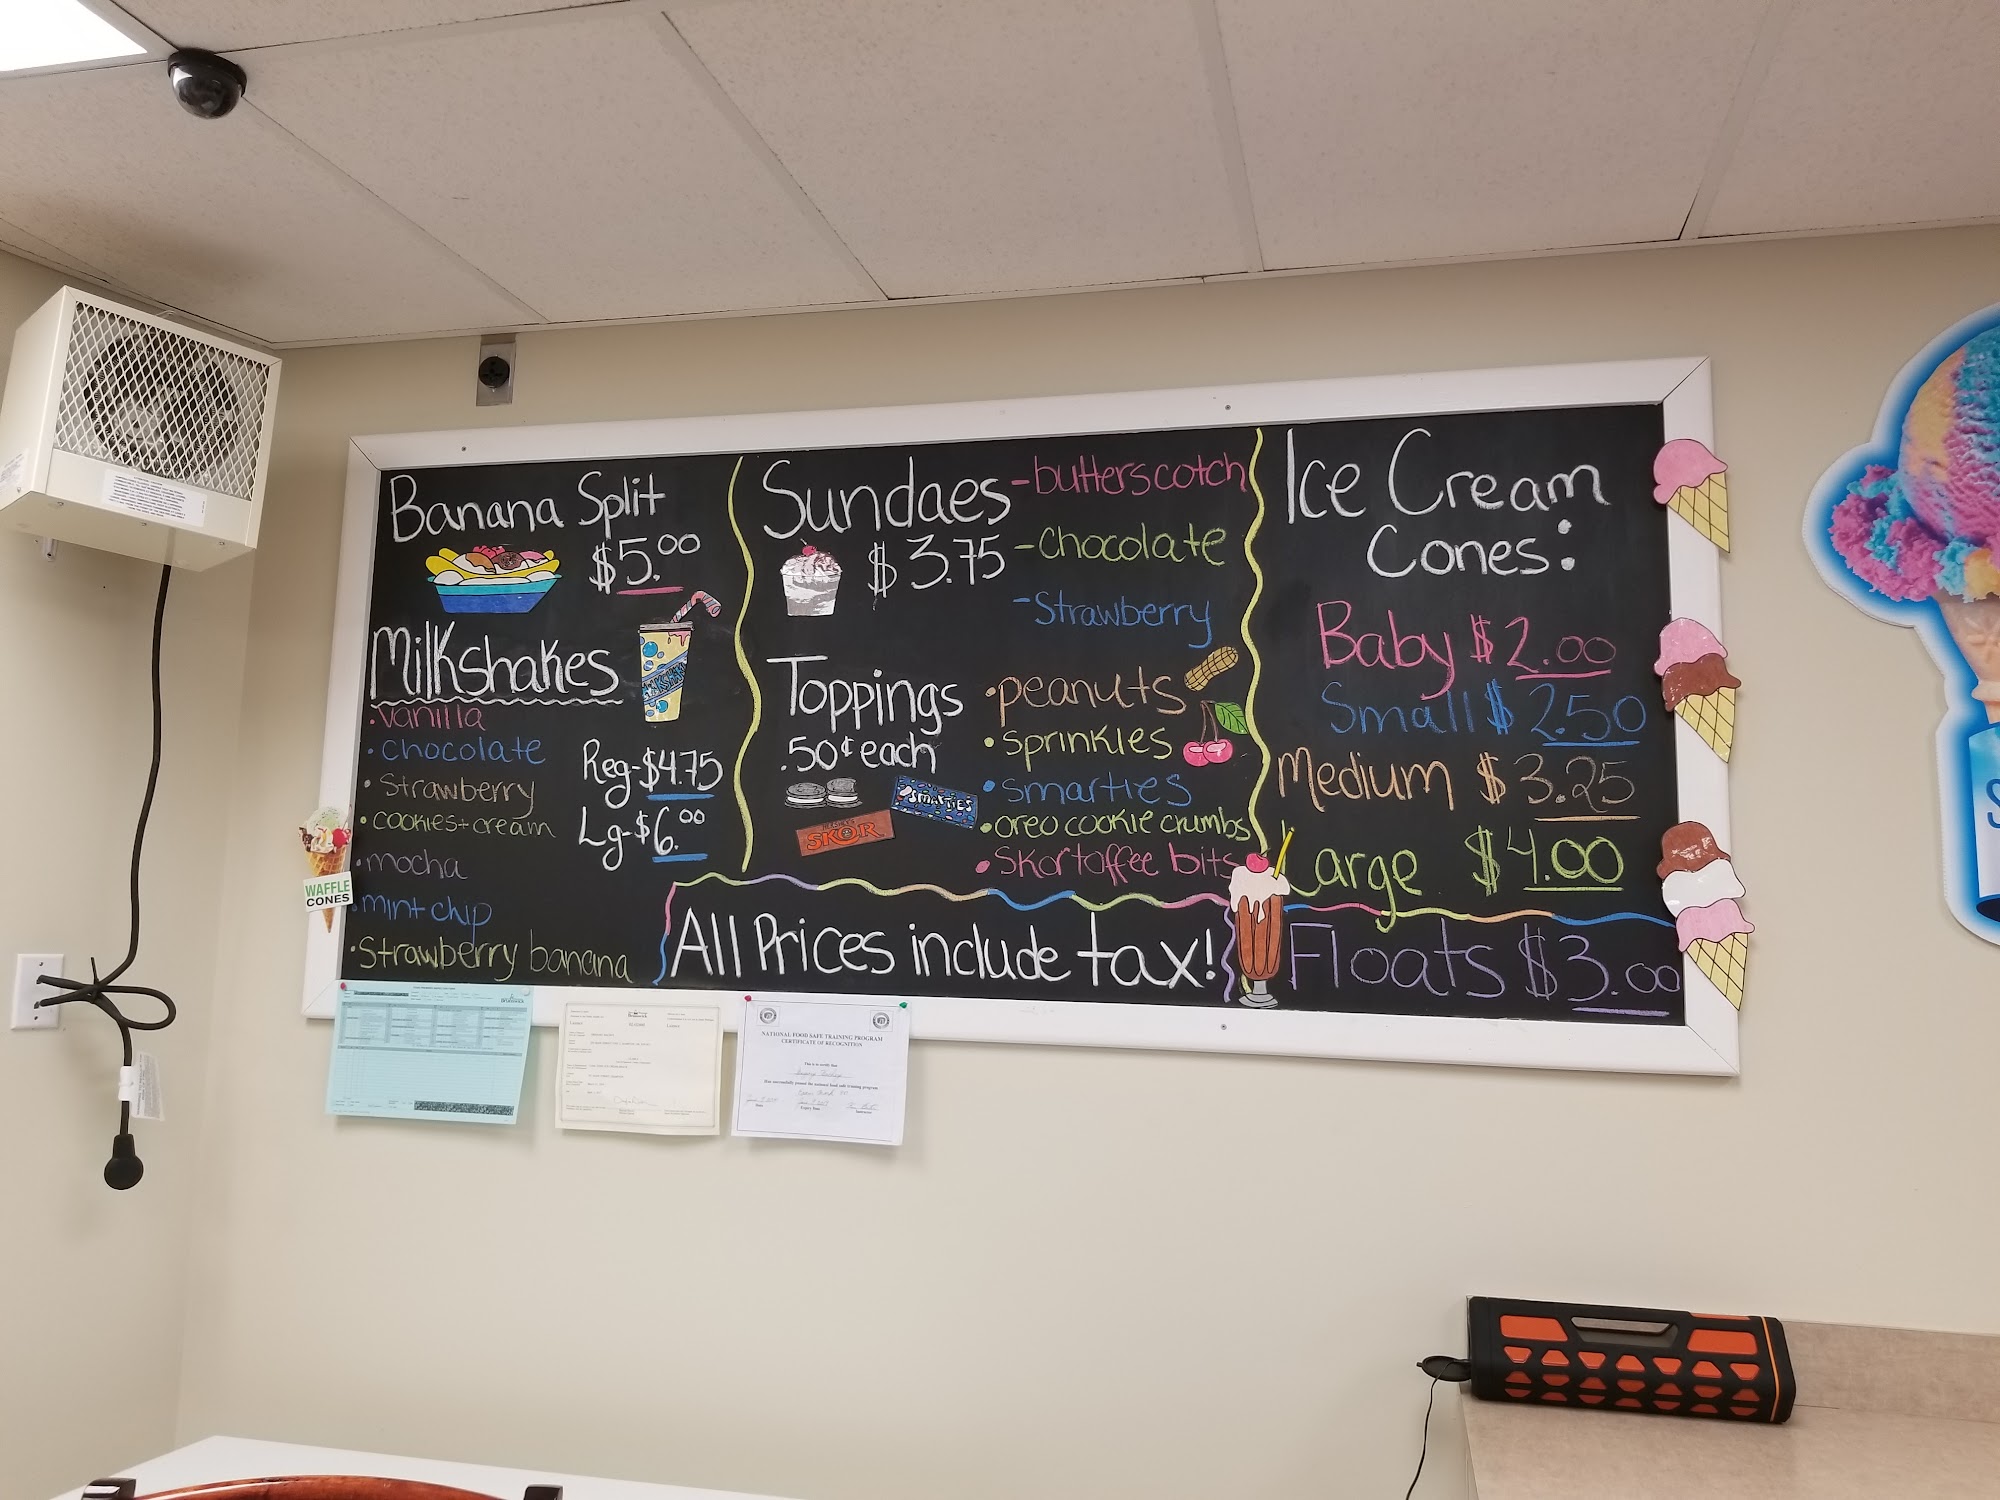 Banana Split
$5.00
Milkshakes
• vanilla
• chocolate
• Strawberry
• cookies + cream
• mocha
• mint chip
• Strawberry banana
Reg-$4.75
Lg-$6.00
Sundaes
$3.75
- butterscotch
- chocolate
- Strawberry
Toppings
.50¢ each
• peanuts
• sprinkles
• smarties
• oreo cookie crumbs
• Skor toffee bits
SMARTIES
SKOR
All Prices include tax!
Ice Cream
Cones:
Baby $2.00
Small $2.50
Medium $3.25
Large $4.00
Floats $3.00
WAFFLE
CONES
NATIONAL FOOD SAFE TRAINING PROGRAM
CERTIFICATE OF RECOGNITION
This is to certify that